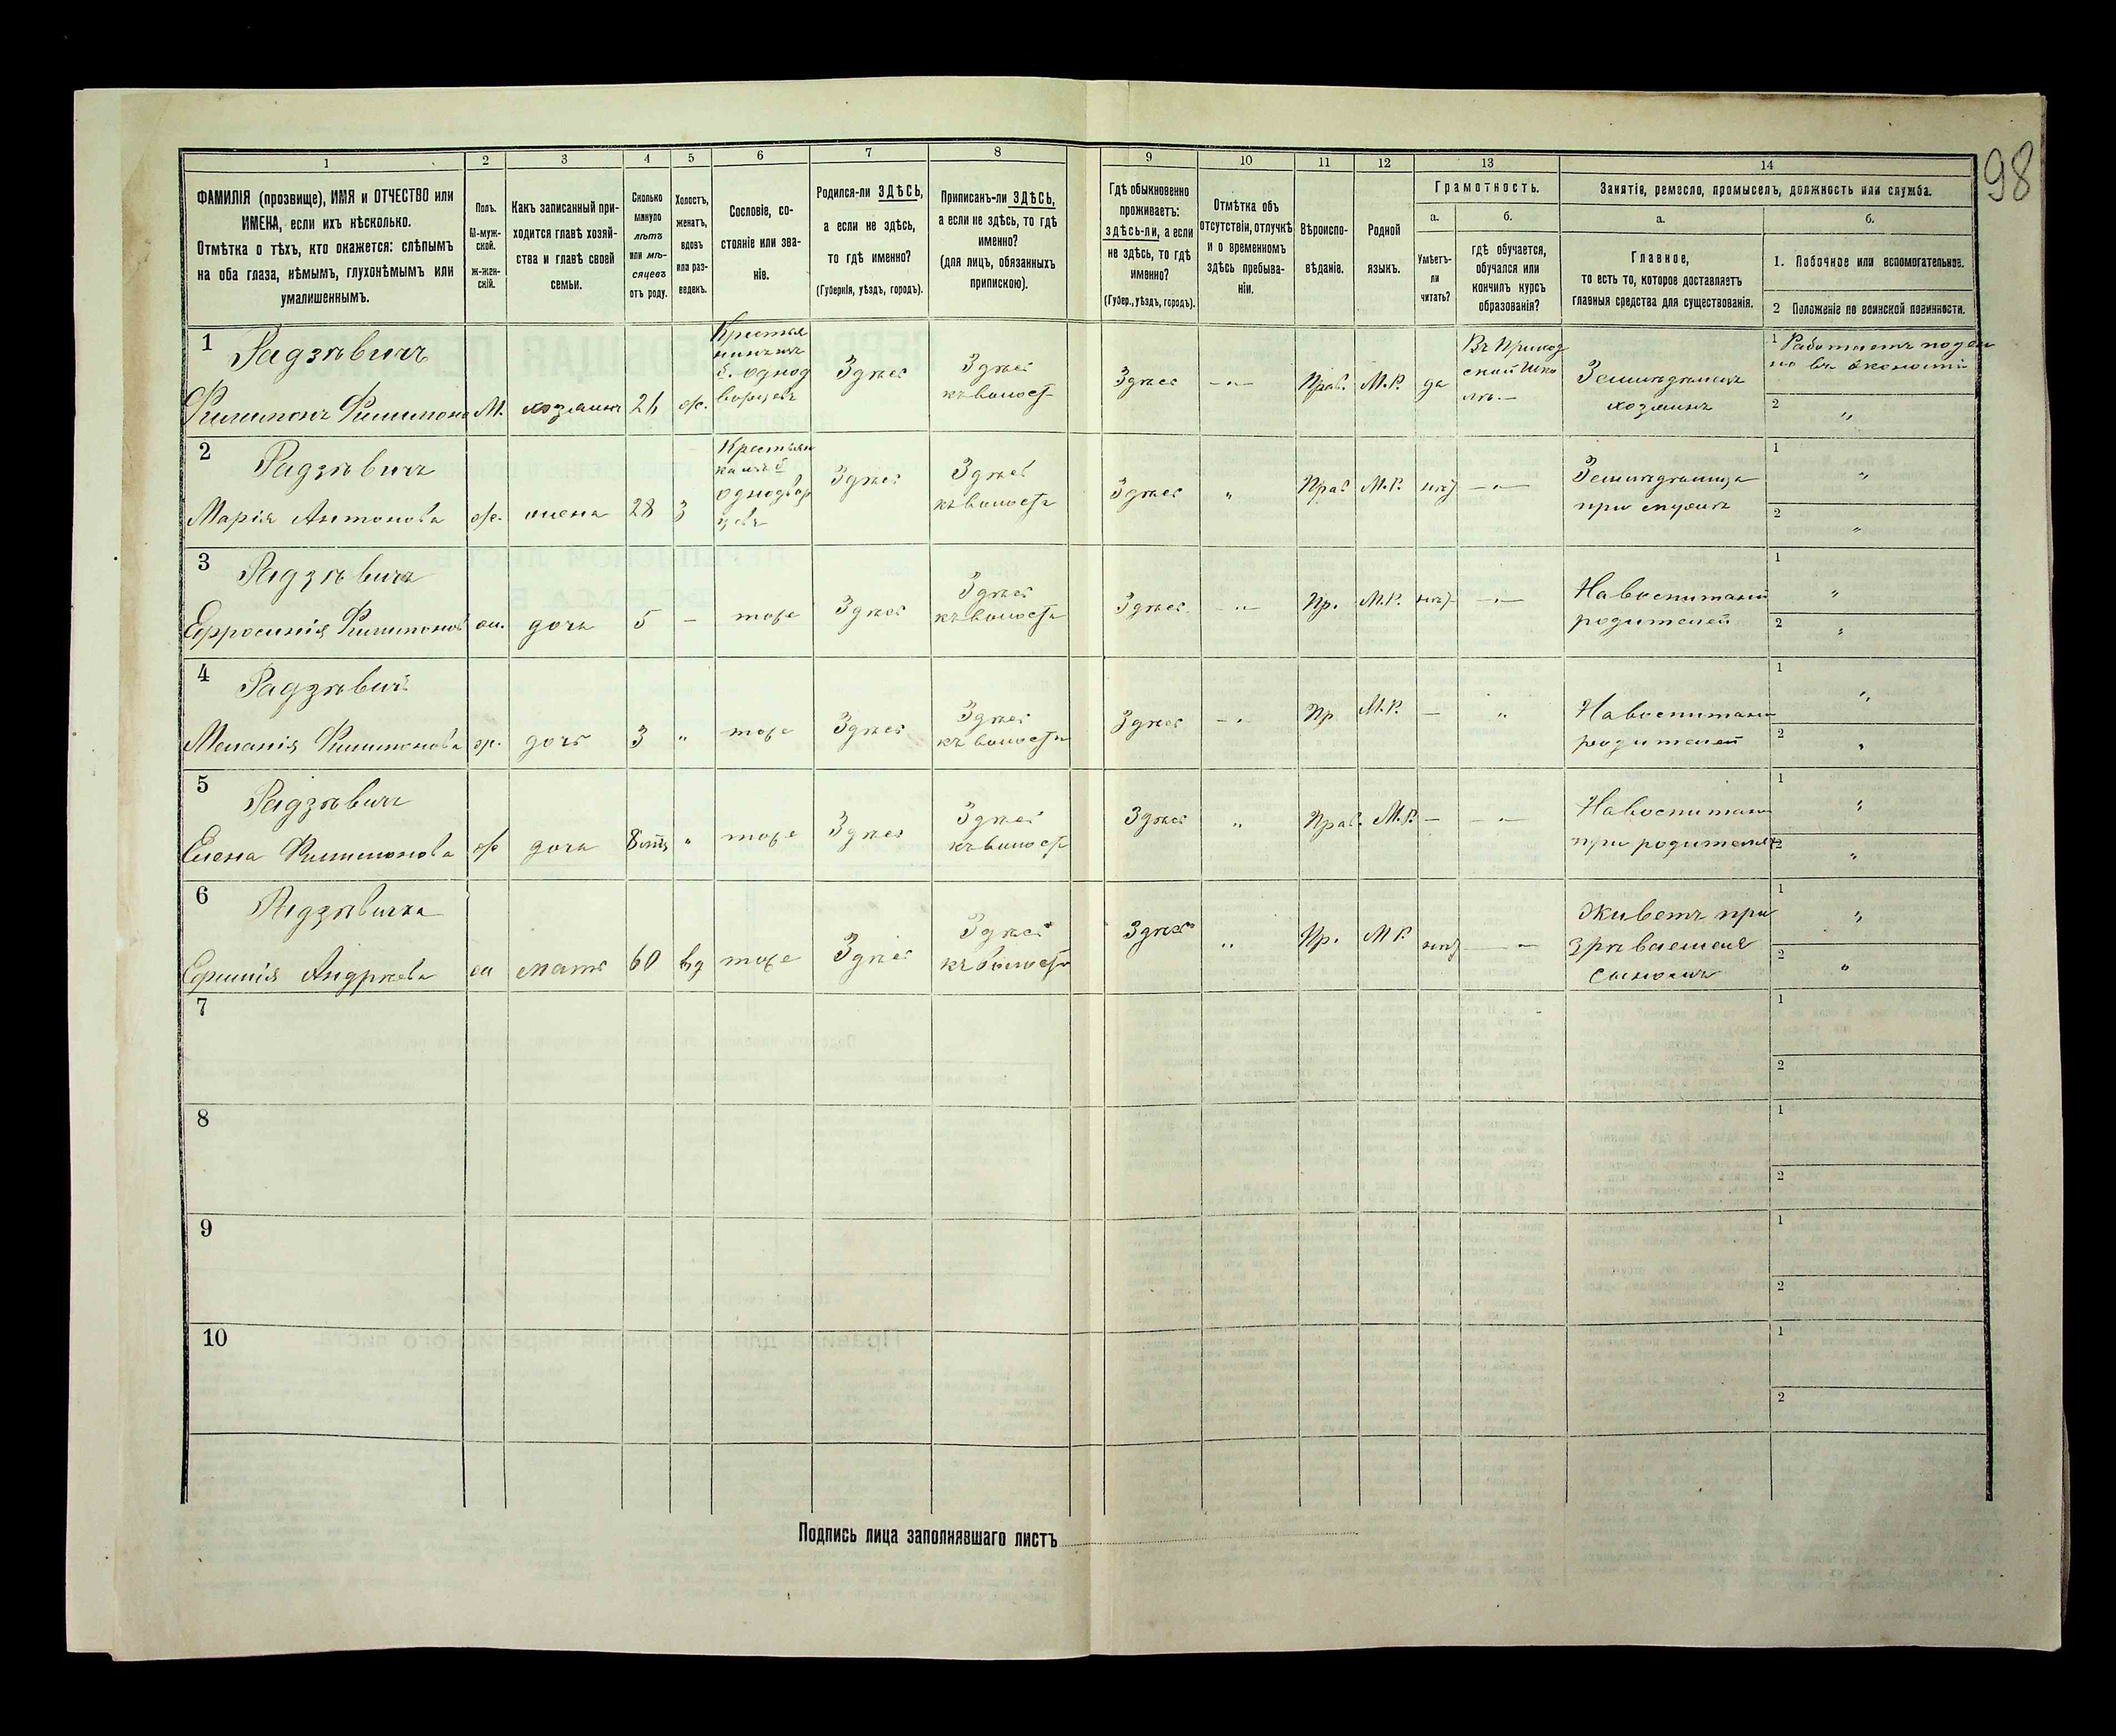 98
1 2 3 4 5 6 7 8 9 10 11 12 13 14
ФАМИЛІЯ (прозвище), ИМЯ и ОТЧЕСТВО или
ИМЕНА, если ихъ нѣсколько.
Отмѣтка о тѣхъ, кто окажется: слѣпымъ
на оба глаза, нѣмымъ, глухонѣмымъ или
умалишеннымъ.
Полъ.
М-муж-
ской.
ж-жен-
скій.
Какъ записанный при-
ходится главѣ хозяй-
ства и главѣ своей
семьи.
Сколько
минуло
лѣтъ
или мѣ-
сяцевъ
отъ роду.
Холостъ,
женатъ,
вдовъ
или раз-
веденъ.
Сословіе, со-
стояніе или зва-
ніе.
Родился-ли ЗДѢСЬ,
а если не здѣсь,
то гдѣ именно?
(Губернія, уѣздъ, городъ).
Приписанъ-ли ЗДѢСЬ,
а если не здѣсь, то гдѣ
именно?
(для лицъ, обязанныхъ
припискою).
Гдѣ обыкновенно
проживаетъ:
здѣсь-ли, а если
не здѣсь, то гдѣ
именно?
(Губер., уѣздъ, городъ).
Отмѣтка объ
отсутствіи, отлучкѣ
и о временномъ
здѣсь пребыва-
ніи.
Вѣроиспо-
вѣданіе.
Родной
языкъ.
Грамотность.
а.
Умѣетъ-
ли
читать?
б.
гдѣ обучается,
обучался или
кончилъ курсъ
образованія?
Занятіе, ремесло, промыселъ, должность или служба.
а.
Главное,
то есть то, которое доставляетъ
главныя средства для существованія.
б.
1. Побочное или вспомогательное.
2 Положеніе по воинской повинности.
1 Радзѣвичъ
Филимонъ Филимоно М. хозяинъ 26 ж.
однод
ворцевъ
Здѣсь
Здѣсь
къ волост
Здѣсь — „ — Прав. М.Р. да
Въ Приход
ской Шко
лѣ. —
Земледѣлецъ
хозяинъ
1 Работаетъ поден
но въ экономіи
2 „
2 Радзѣвичъ
Марія Антонова ж. жена 28 З
Крестьян
однодвор
цевъ
Здѣсь
Здѣсь
къ волости
Здѣсь „ Прав М.Р. нѣт — „ —
Земледѣлица
при мужѣ
1 „
2 „
3 Радзѣвичъ
Ефросинія Филимонов ж. дочь 5 — тоже Здѣсь
Здѣсь
къ волости
Здѣсь — „ — Пр. М.Р. нѣт — „ —
На воспитаніи
родителей
1 „
2 „
4 Радзѣвич
Меланія Филимонова ж. дочь 3 „ тоже Здѣсь
Здѣсь
къ волости
Здѣсь — „ Пр М.Р. — „
На воспитаніи
родителей
1 „
2 „
5 Радзѣвичъ
Елена Филимонова ж дочь 8 мѣс „ тоже Здѣсь
Здѣсь
къ волост
Здѣсь „ Прав. М.Р. — — „ —
На воспитаніи
при родителях
1 „
2 „
6 Радзѣвичка
Ефимія Андрѣева ж мать 60 вд тоже Здѣсь
Здѣсь
къ волости
Здѣсь „ Пр. М Р. нѣт — „ —
Живетъ при
зрѣваемая
сыномъ
1 „
2 „
7 1
2
8 1
2
9 1
2
10 1
2
Подпись лица заполнявшаго листъ